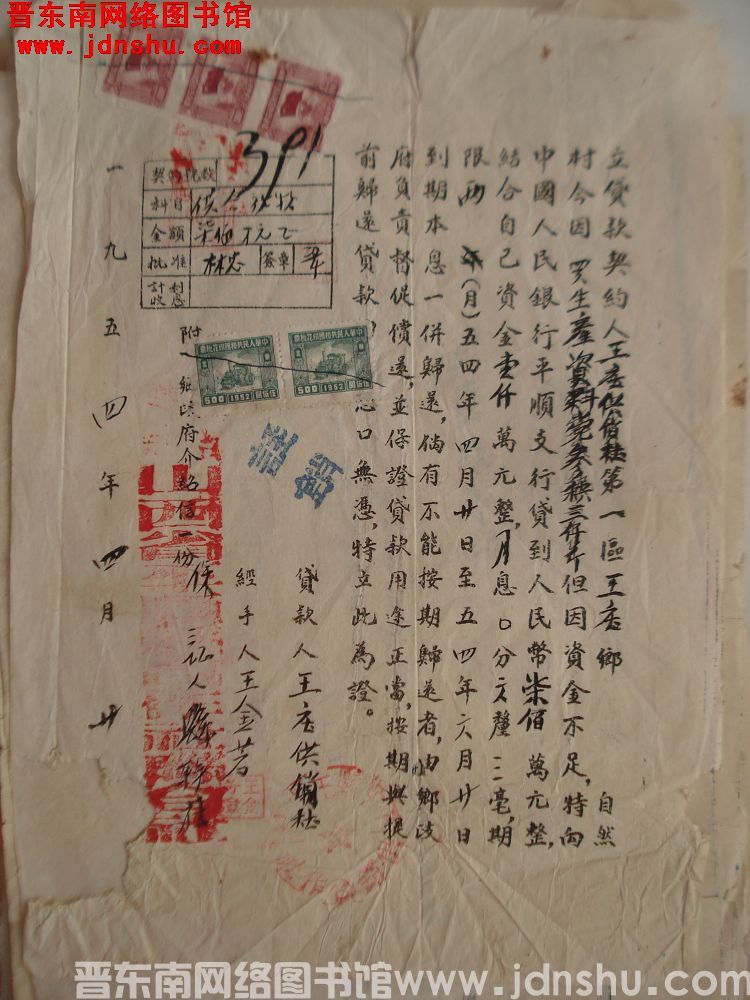 晋东南网络图书馆
www.jdnshu.com
立貸款契約人王庄供銷社第一區王庄鄉 自然
村今因買生產資料 但因資金不足，特向
中國人民銀行平順支行貸到人民幣柒佰萬元整，
結合自己資金壹仟萬元整，月息〇分 釐三毫，期
限兩年(月)五四年四月廿日至五四年六月廿日
到期本息一併歸还，倘有不能按期歸还者，由鄉政
府負責督促償還，並保證貸款用途正當，按期與提
前歸还貸款， 口無憑，特立此為證。
貸款人王庄供銷社
經手人王金
保證人
附 鄉政府介紹信一份
一九五四年四月廿
契約號數 391
科目 供合
金額 柒佰万元正
批准 簽章
計收利息
中華人民共和國印花稅票
500 1952 伍佰圓
中華人民共和國印花稅票
500 1952 伍佰圓
註銷
晋东南网络图书馆www.jdnshu.com